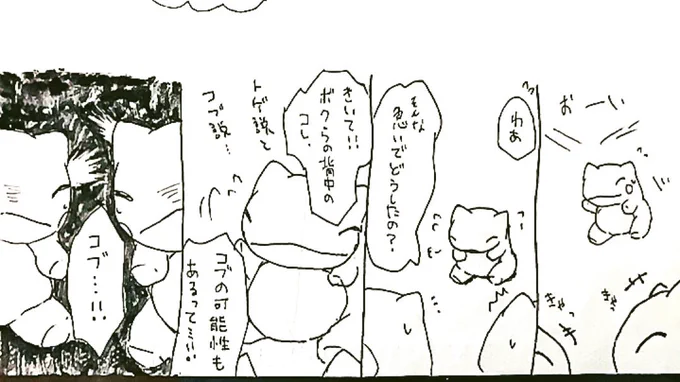 おーい
きゃっ
きゃっ
わあ
そんな
急いでどうしたの?
きいて!!
ボクらの背中の
コレ、
トゲ説と
コブ説…
コブの可能性も
あるって…!!
コブ…!!